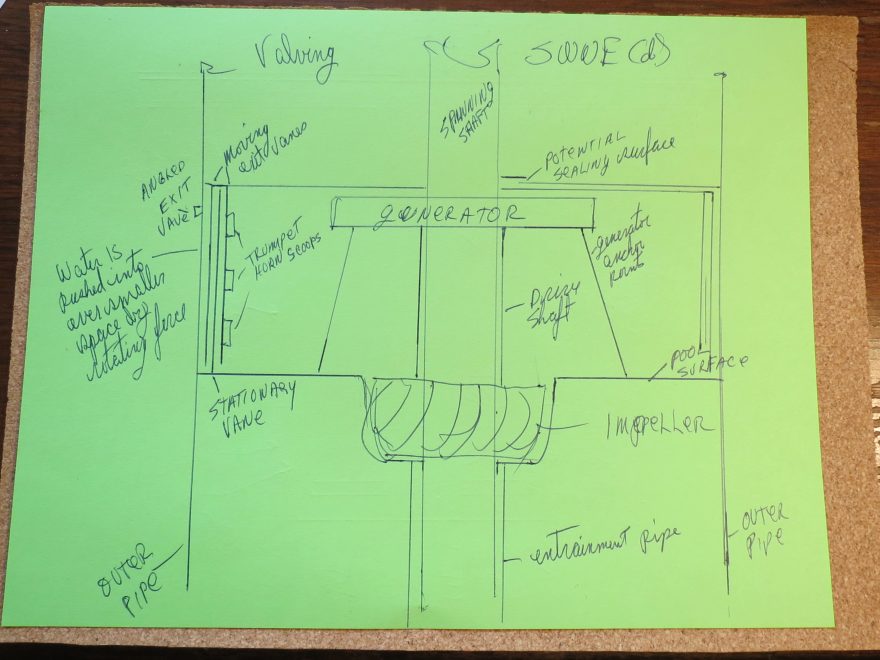 Valving
SWWE (d)
SPINNING
SHAFT
moving
exit vanes
POTENTIAL
SEALING surface
ANGLED
EXIT
VAVE
GENERATOR
TRUMPET
HORN SCOOPS
generator
anchor
points
Water is
pushed into
ever smaller
space by
rotating force
Drive
shaft
POOL
SURFACE
STATIONARY
VANE
IMPELLER
entrainment pipe
OUTER
PIPE
OUTER
PIPE